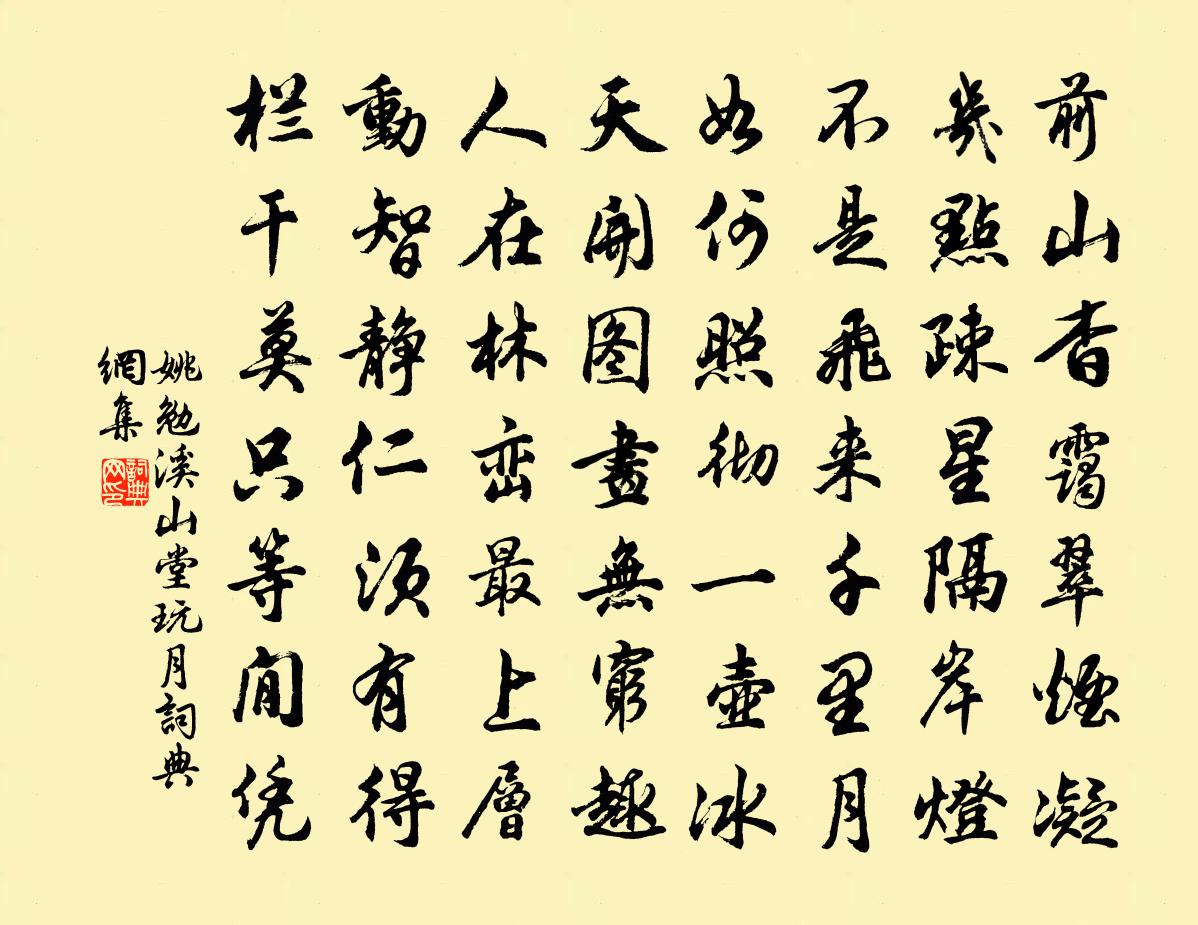 前山杳靄翠煙凝
幾點疎星隔岸燈
不是飛来千里月
如何照彻一壺冰
天開图畫無窮趣
人在林峦最上層
動智静仁須有得
栏干莫只等閒凭
姚勉溪山堂玩月詞典
網集
詞典網印